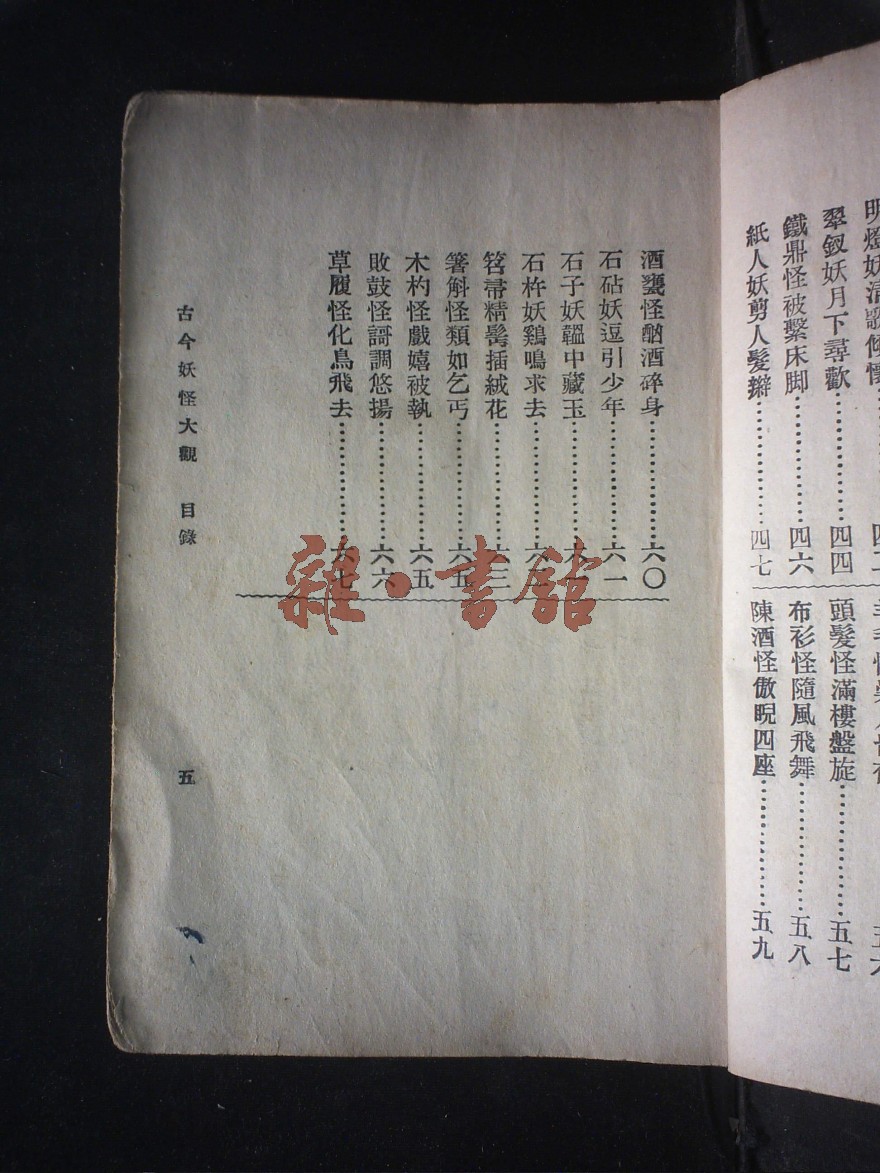 翠釵妖月下尋歡…………四四
鐵鼎怪被繫床脚…………四六
紙人妖剪人髮辮…………四七
頭髮怪滿樓盤旋…………五七
布衫怪隨風飛舞…………五八
陳酒怪傲睨四座…………五九
酒甕怪酗酒碎身…………六〇
石砧妖逗引少年…………六一
石子妖韞中藏玉…………
石杵妖鷄鳴求去…………
笤帚精髩插絨花…………六三
箸斛怪類如乞丐…………六五
木杓怪戲嬉被執…………六五
敗鼓怪謌調悠揚…………六六
草履怪化鳥飛去…………六七
古今妖怪大觀 目錄 五
雜·書館